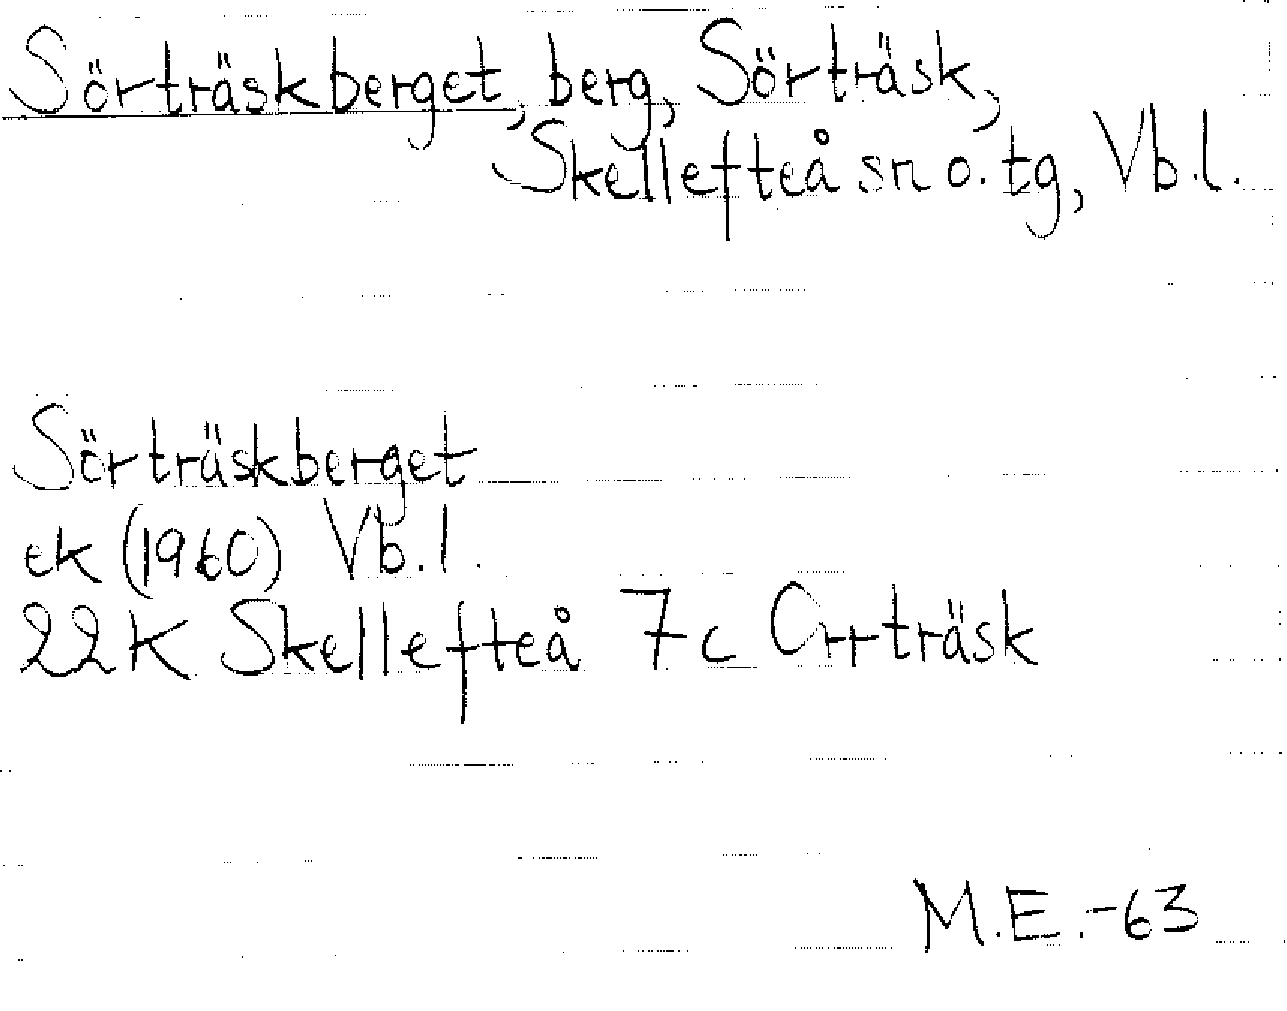 Sörträskberget, berg, Sörträsk,
Skellefteå sn o. tg, Vb.l.
Sörträskberget
ek (1960) Vb.l.
22K Skellefteå 7c Orrträsk
M.E.-63